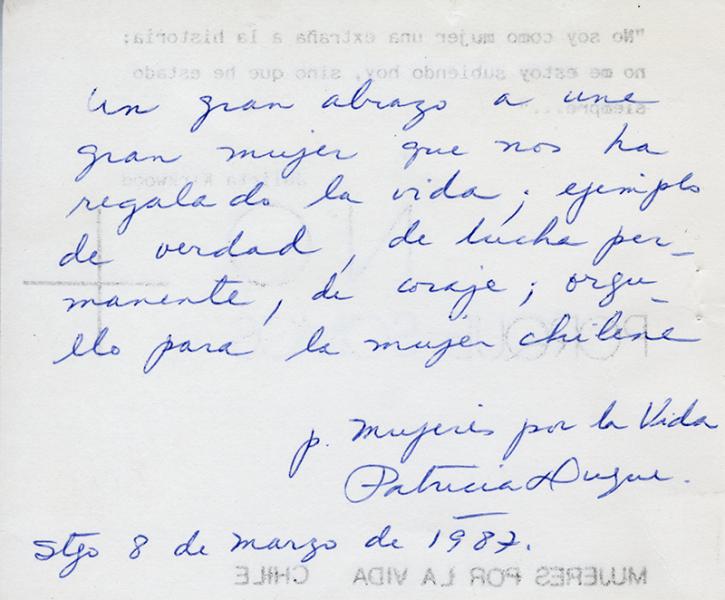 "No soy como mujer una extraña a la historia:
no me estoy subiendo hoy, sino que he estado
siempre..."
Un gran abrazo a una
gran mujer que nos ha
Julieta Kirkwood
regalado la vida; ejemplo
de verdad, de lucha per-
manente, de coraje; orgu-
llo para la mujer chilena
PORQUE
p. Mujeres por la Vida
Patricia Duque.
Stgo 8 de marzo de 1987.
MUJERES POR LA VIDA CHILE